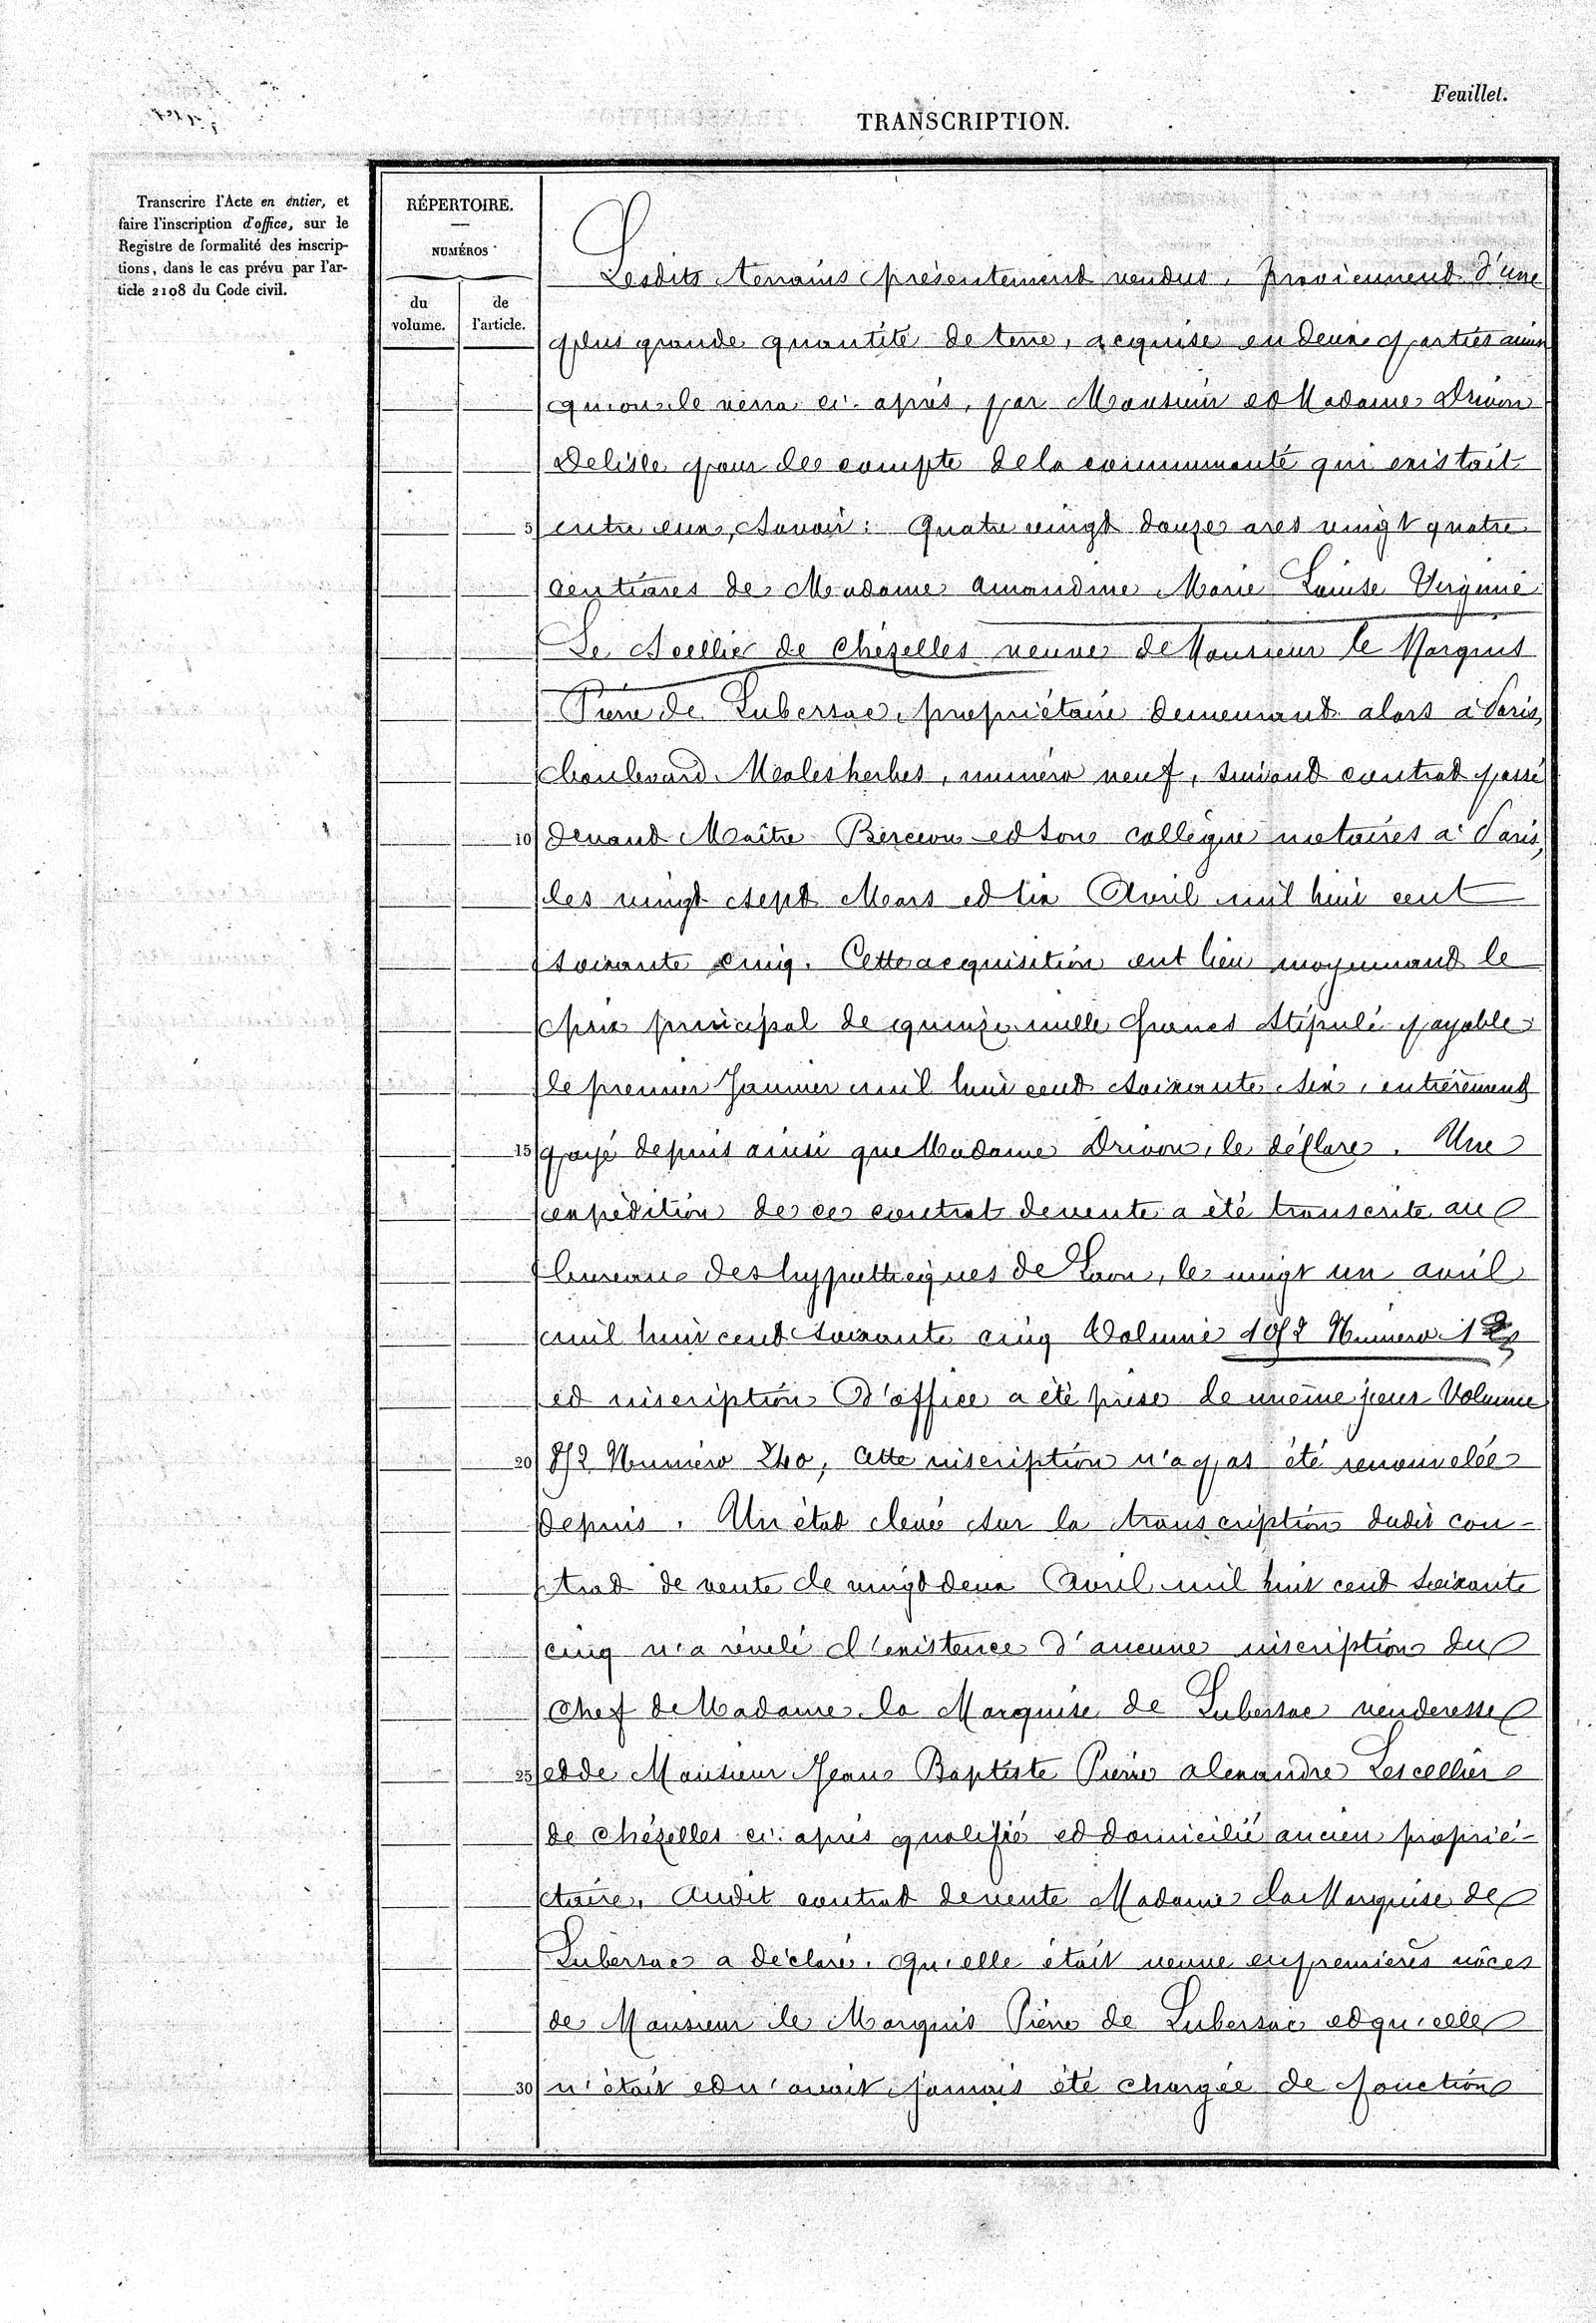 Feuillet.
TRANSCRIPTION.
Transcrire l'Acte en entier, et
faire l'inscription d'office, sur le
Registre de formalité des inscrip-
tions, dans le cas prévu par l'ar-
ticle 2108 du Code civil.
RÉPERTOIRE.
NUMÉROS
du volume.
de l'article.
Lesdits terrains présentement vendus, proviennent d'une
plus grande quantité de terre, acquise en deux parties ainsi
qu'on le verra ci-après, par Monsieur et Madame Drivon
Delisle pour le compte de la communauté qui existait
5 entre eux, savoir : Quatre vingt douze ares vingt quatre
centiares de Madame Amandine Marie Louise Virginie
Le Scellier de Chézelles veuve de Monsieur le Marquis
Pierre de Lubersac, propriétaire demeurant alors à Paris,
boulevard Malesherbes, numéro neuf, suivant contrat passé
10 devant Maître Berceon et son collègue notaires à Paris,
les vingt sept Mars et six Avril mil huit cent
soixante cinq. Cette acquisition eut lieu moyennant le
prix principal de quinze mille francs stipulé payable
le premier Janvier mil huit cent soixante six, entièrement
15 payé depuis ainsi que Madame Drivon, le déclare. Une
expédition de ce contrat de vente a été transcrite au
bureau des hypothèques de Laon, le vingt un avril
mil huit cent soixante cinq Volume Numéro
et inscription d'office a été prise le même jour Volume
20 Numéro 240, cette inscription n'a pas été renouvelée
depuis. Un état levé sur la transcription dudit con-
trat de vente le vingt deux Avril mil huit cent soixante
cinq n'a révélé l'existence d'aucune inscription du
chef de Madame la Marquise de Lubersac venderesse
25 et de Monsieur Jean Baptiste Pierre Alexandre Lescellier
de Chézelles ci-après qualifié et domicilié ancien proprié-
taire. Audit contrat de vente Madame la Marquise de
Lubersac a déclaré, qu'elle était veuve en premières nôces
de Monsieur le Marquis Pierre de Lubersac et qu'elle
30 n'était et n'avait jamais été chargée de fonction